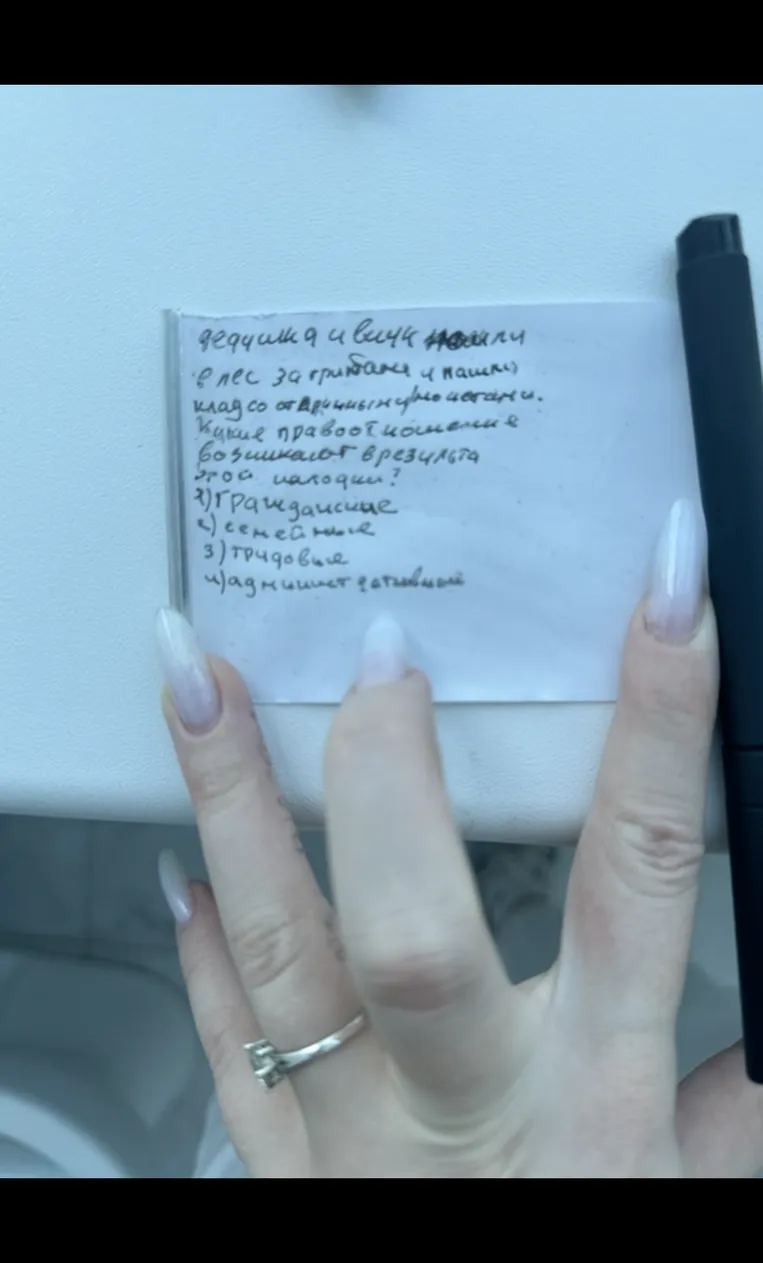 дедушка и внук пошли
в лес за грибами и нашли
клад со старинными монетами.
Какие правоотношения
возникают в результа
этой находки?
1) гражданские
2) семейные
3) трудовые
4) административный